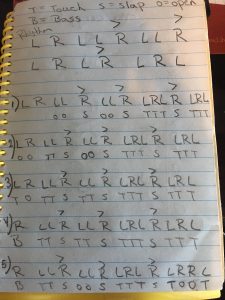 T= Touch S= slap O=open
B= Bass
Rhythm
> >
L R L L R L L R
>
R L R L R R L
> > >
1) L R L L R L L R L R L R L
O O S O O S T T T T T T
> > >
2) L R L L R L L R L R L R L R L
O O T T S O O S T T T S T T T
> > >
3) L R L L R L L R L R L R L R L
T O T T S T T S T T T S T T T
> > >
4) R L L R L L R L R L R L R L
B T T S T T S T T T S T T T
> > >
5) R L L R L L R L R L R L R R L
B T T S O O S T T T S T O O T